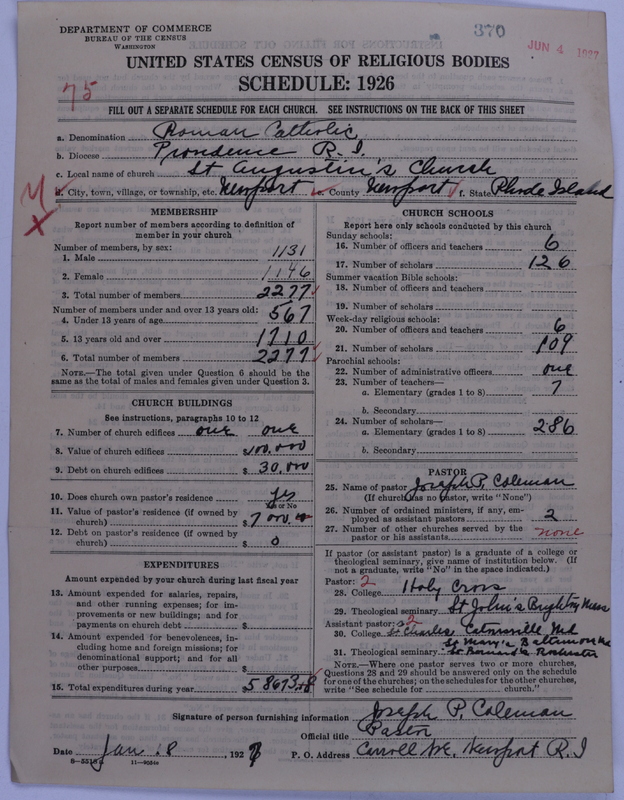 DEPARTMENT OF COMMERCE
BUREAU OF THE CENSUS
WASHINGTON
370
JUN 4 1927
UNITED STATES CENSUS OF RELIGIOUS BODIES
SCHEDULE: 1926
75
FILL OUT A SEPARATE SCHEDULE FOR EACH CHURCH. SEE INSTRUCTIONS ON THE BACK OF THIS SHEET
a. Denomination Roman Catholic
b. Diocese Providence R. I.
c. Local name of church St Augustin's Church
d. City, town, village, or township, etc. Newport e. County Newport f. State Rhode Island
MEMBERSHIP
Report number of members according to definition of member in your church
Number of members, by sex:
1. Male 1131
2. Female 1146
3. Total number of members 2277
Number of members under and over 13 years old:
4. Under 13 years of age 567
5. 13 years old and over 1710
6. Total number of members 2277
NOTE.—The total given under Question 6 should be the same as the total of males and females given under Question 3.
CHURCH BUILDINGS
See instructions, paragraphs 10 to 12
7. Number of church edifices one one
8. Value of church edifices $100,000
9. Debt on church edifices $30,000
10. Does church own pastor's residence yes
Yes or No
11. Value of pastor's residence (if owned by church) $7000.
12. Debt on pastor's residence (if owned by church) $0
EXPENDITURES
Amount expended by your church during last fiscal year
13. Amount expended for salaries, repairs, and other running expenses; for improvements or new buildings; and for payments on church debt $
14. Amount expended for benevolences, including home and foreign missions; for denominational support; and for all other purposes $
15. Total expenditures during year $
CHURCH SCHOOLS
Report here only schools conducted by this church
Sunday schools:
16. Number of officers and teachers 6
17. Number of scholars 126
Summer vacation Bible schools:
18. Number of officers and teachers
19. Number of scholars
Week-day religious schools:
20. Number of officers and teachers 6
21. Number of scholars 109
Parochial schools:
22. Number of administrative officers one
23. Number of teachers—
a. Elementary (grades 1 to 8) 7
b. Secondary
24. Number of scholars—
a. Elementary (grades 1 to 8) 286
b. Secondary
PASTOR
25. Name of pastor Joseph P. Coleman
(If church has no pastor, write "None")
26. Number of ordained ministers, if any, employed as assistant pastors 2
27. Number of other churches served by the pastor or his assistants none
If pastor (or assistant pastor) is a graduate of a college or theological seminary, give name of institution below. (If not a graduate, write "No" in the space indicated.)
Pastor: 2
28. College Holy Cross
29. Theological seminary St John's Brighton Mass
Assistant pastor: 2
30. College St Charles Catonsville Md
St Mary's Baltimore Md
31. Theological seminary St Bernard's Rochester
NOTE.—Where one pastor serves two or more churches, Questions 28 and 29 should be answered only on the schedule for one of the churches; on the schedules for the other churches, write "See schedule for church."
Signature of person furnishing information Joseph P. Coleman
Official title Pastor
Date Jan 18 1927 P. O. Address Carroll Ave. Newport R I
8-5516